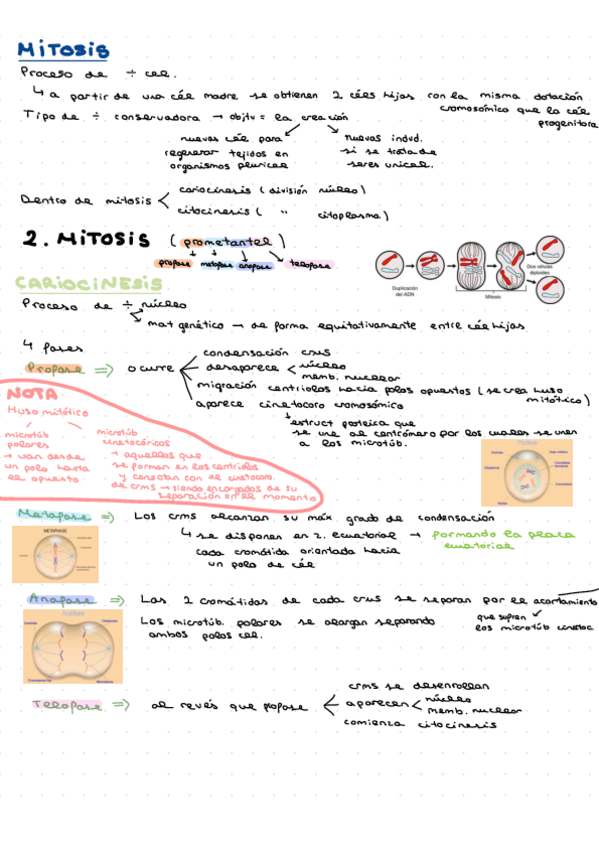 MITOSIS
Proceso de ÷ cel.
↳ a partir de una cél madre se obtienen 2 céls hijas con la misma dotación
cromosómica que la cél
progenitora
Tipo de ÷ conservadora → objtv = la creación
nuevas cél para
regenerar tejidos en
organismos pluricel
nuevas indvd.
si se trata de
seres unicel.
Dentro de mitosis
cariocinesis (división núcleo)
citocinesis ( " citoplasma)
2. MITOSIS (prometantel)
profase metafase anafase telofase
Duplicación
del ADN
Mitosis
Dos células
diploides
CARIOCINESIS
Proceso de ÷ núcleo
mat genético → de forma equitativamente entre cél hijas
4 fases
Profase => ocurre
condensación crms
desaparece
núcleo
memb. nuclear
migración centriolos hacia polos opuestos (se crea huso
mitótico)
aparece cinetocoro cromosómico
↓ estruct proteica que
se une al centrómero por los cuales se unen
a los microtúb.
NOTA
Huso mitótico
microtúb
polares
→ van desde
un polo hasta
el opuesto
microtúb
cinetocóricos
→ aquellos que
se forman en los centriolos
y conectan con el cinetocoro
de crms → siendo encargados de su
separación en el momento
Metafase => Los crms alcanzan su máx. grado de condensación
↳ se disponen en z. ecuatorial → formando la placa
ecuatorial
cada cromátida orientada hacia
un polo de cél
METAPHASE
Anafase => Las 2 cromátidas de cada crms se separan por el acortamiento
que sufren
los microtúb cinetoc
Los microtúb. polares se alargan separando
ambos polos cel.
Telofase => al revés que profase
crms se desenrollan
aparecen
núcleo
memb. nuclear
comienza citocinesis